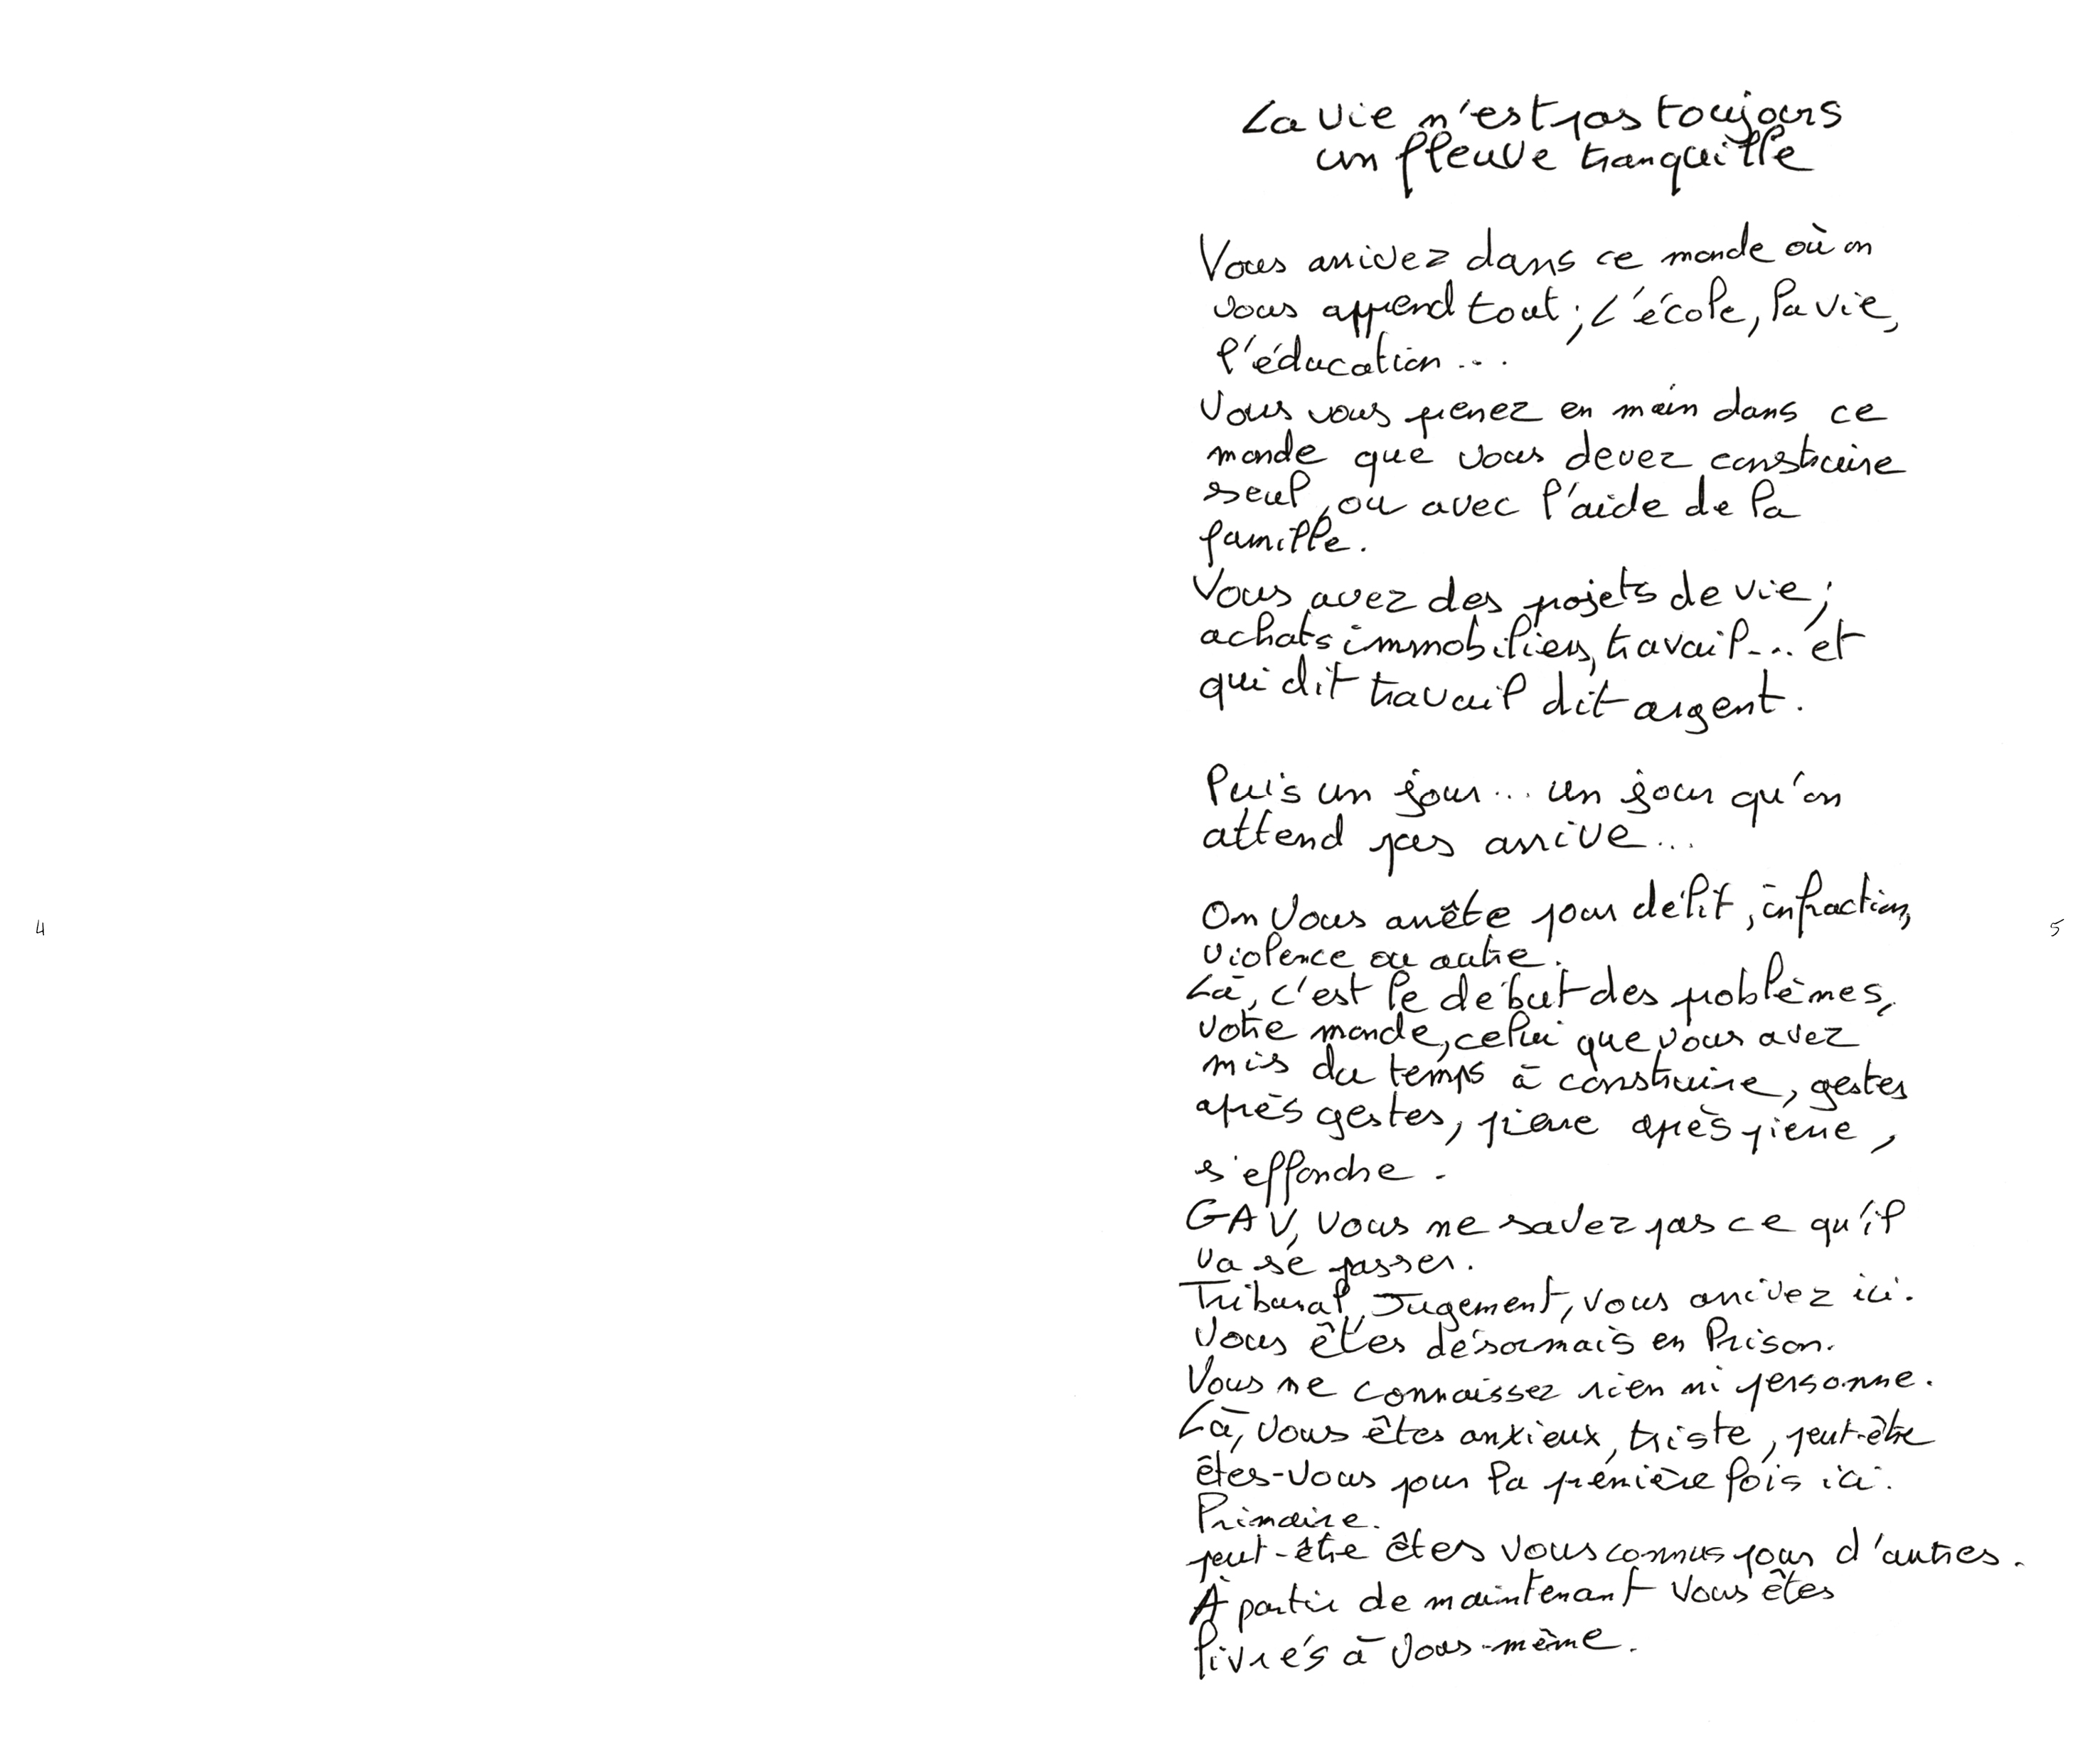 La vie n'est pas toujours
un fleuve tranquille
Vous arrivez dans ce monde où on
vous apprend tout ; L'école, la vie,
l'éducation...
Vous vous prenez en main dans ce
monde que vous devez construire
seul, ou avec l'aide de la
famille.
Vous avez des projets de vie ;
achats immobiliers, travail... et
qui dit travail dit argent.
Puis un jour... un jour qu'on
attend pas arrive...
On Vous arrête pour délit, infraction,
violence ou autre.
Là, c'est le début des problèmes,
votre monde, celui que vous avez
mis du temps à construire, gestes
après gestes, pierre après pierre,
s'effondre.
GAV, vous ne savez pas ce qu'il
va se passer.
Tribunal, Jugement, vous arrivez ici.
Vous êtes désormais en Prison.
Vous ne connaissez rien ni personne.
Là, vous êtes anxieux, triste, peut-être
êtes-vous pour la première fois ici.
Primaire.
peut-être êtes vous connus pour d'autres.
À partir de maintenant vous êtes
livrés à vous-même.
4
5